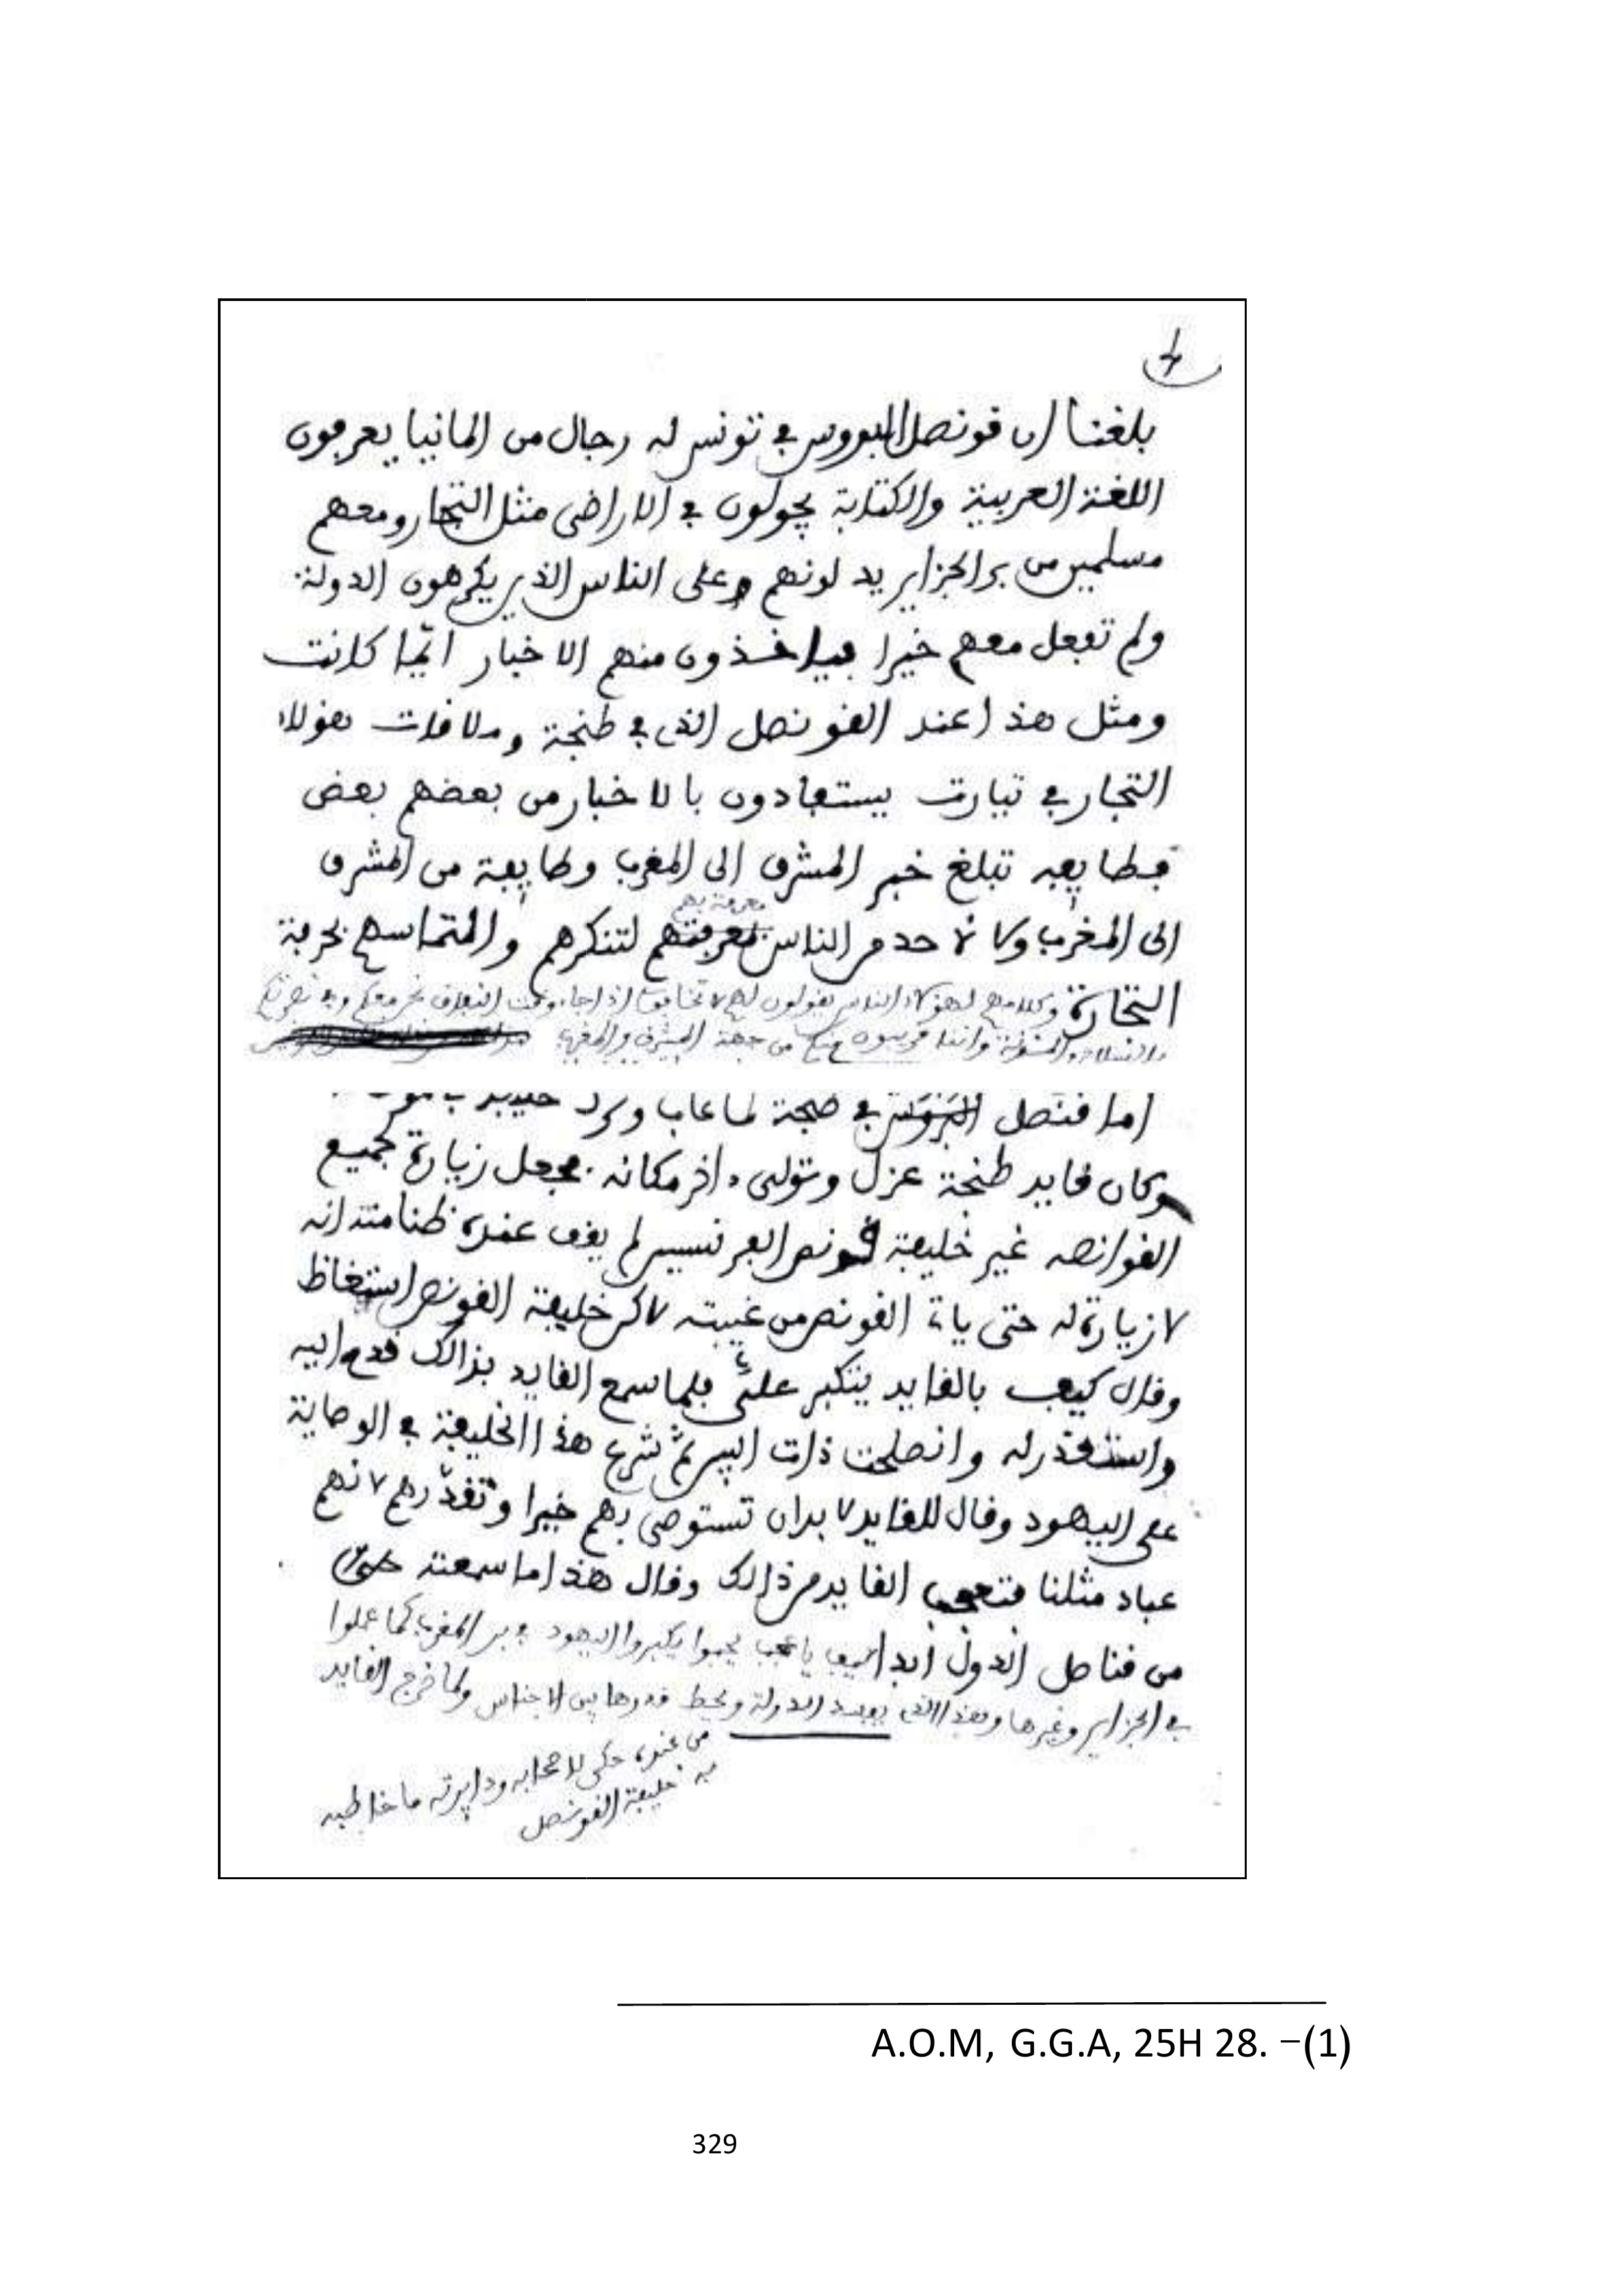 بلغنا ان فونصل البروس في تونس له رجال من المانيا يعرفون
اللغة العربية والكتابة يجولون في الاراضى مثل التجار ومعهم
مسلمين من بر الجزاير يدلونهم وعلى الناس الذين يكرهون الدولة
ولم تفعل معهم خيرا فياخذون منهم الاخبار ايّما كانت
ومثل هذا عند الفونصل الذى في طنجة وملافات هولاء
التجار في تيارت يستفادون بالاخبار من بعضهم بعض
فطايفه تبلغ خبر المشرق الى المغرب وطايفة من المشرق
معرفة بهم
الى المغرب ولا لاحد من الناس لتنكرهم والتماسهم بحرفة
التجارة وكلامهم لهولاء الناس يفولون لهم لا تخافوا اذا جاء وفت
من جهة المشرق والمغرب
اما فنصل البروس في طنجة لما غاب وترك
وكان فايد طنجة عزل وتولى ءاخر مكانه فجعل زيارة لجميع
الفوانصه غير خليفة فونص الفرنسيس لم يفف عنده ظنا منه انه
لا زيارة له حتى ياتي الفونص من غيبته لاكن خليفة الفونص استغاظ
وفال كيف بالفايد يتكبر علىّ فلما سمع الفايد بذالك فدم اليه
واستعذر له وانصلحت ذات البين ثم شرع هذا الخليفة في الوصاية
على اليهود وفال للفايد لا بد ان تستوصى بهم خيرا وتفدّرهم لانهم
عباد مثلنا فتعجب الفايد من ذالك وفال هذا ما سمعته
من فناصل الدول ابدا كيف يحبوا يكبروا اليهود في بر المغرب كما عملوا
في الجزاير وغيرها وهذا الذى يفسد الدولة ويحط فدرها بين الاجناس ولما خرج الفايد
من عنده حكى لاصحابه ودايرته ما خاطبه
به خليفة الفونصل
A.O.M, G.G.A, 25H 28. –(1)
329